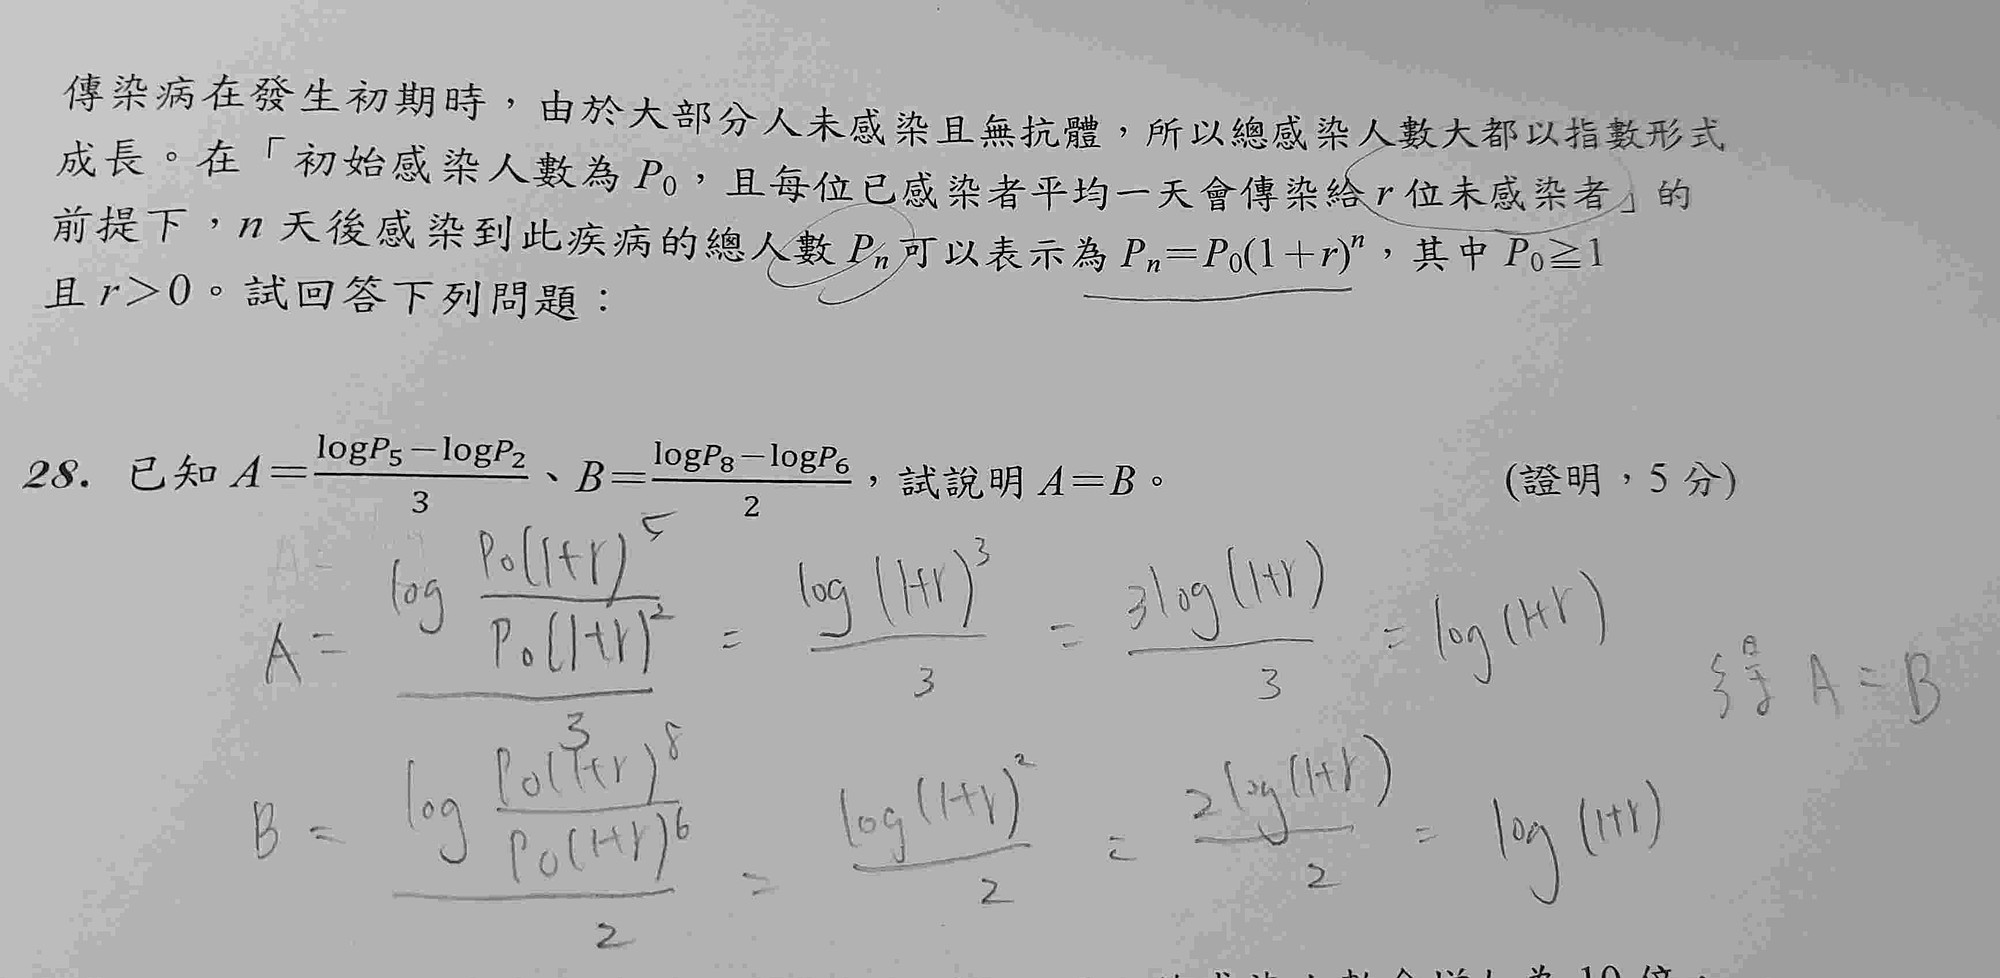 傳染病在發生初期時，由於大部分人未感染且無抗體，所以總感染人數大都以指數形式
成長。在「初始感染人數為 P₀，且每位已感染者平均一天會傳染給 r 位未感染者」的
前提下，n 天後感染到此疾病的總人數 Pₙ 可以表示為 Pₙ=P₀(1+r)ⁿ，其中 P₀≧1
且 r>0。試回答下列問題：
28. 已知 A=(logP₅-logP₂)/3、B=(logP₈-logP₆)/2，試說明 A=B。 (證明，5 分)
A = (log (P₀(1+r)⁵)/(P₀(1+r)²))/3 = (log (1+r)³)/3 = (3log (1+r))/3 = log (1+r)
得 A = B
B = (log (P₀(1+r)⁸)/(P₀(1+r)⁶))/2 = (log (1+r)²)/2 = (2log (1+r))/2 = log (1+r)
10 倍，